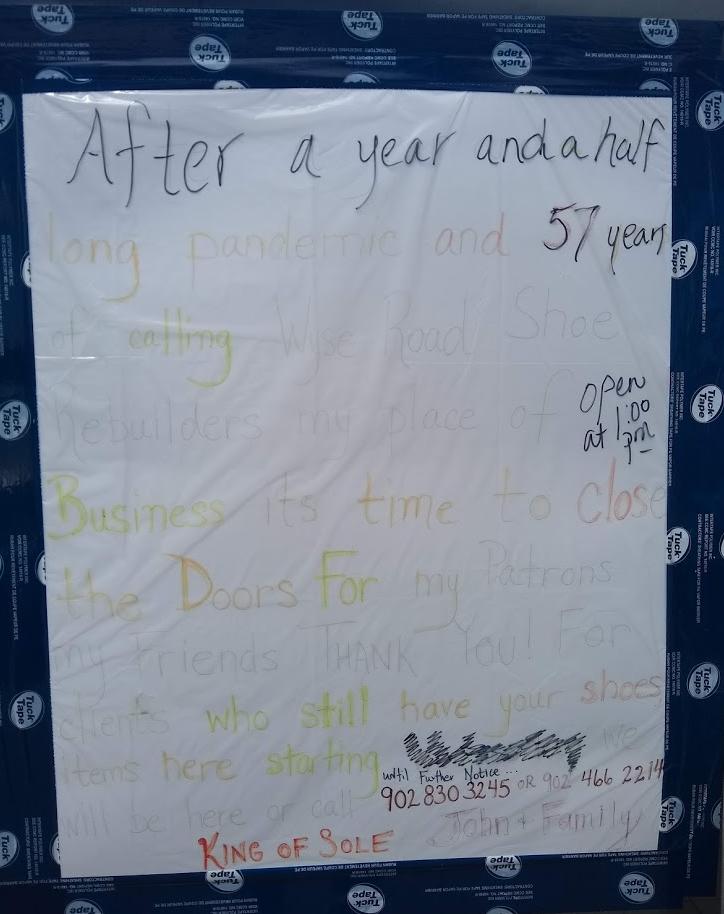 After a year and a half
long pandemic and 57 years
of calling Wyse Road Shoe
Rebuilders my place of
open
at 1:00
pm
Business its time to close
the Doors For my Patrons
my Friends THANK YOU! For
clients who still have your shoes
items here starting we
until Further Notice...
will be here or call 902 830 3245 OR 902 466 2214
KING OF SOLE John + Family
Tuck
Tape